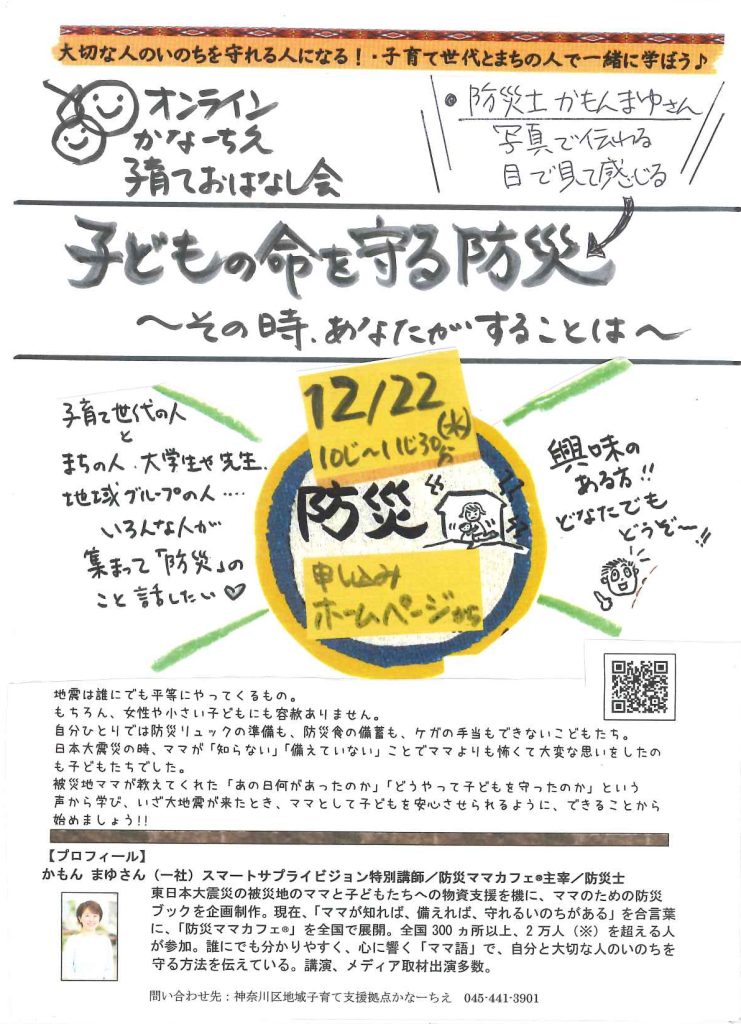 大切な人のいのちを守れる人になる！・子育て世代とまちの人で一緒に学ぼう♪
オンライン
かなーちえ
子育ておはなし会
●防災士かもんまゆさん
写真で伝わる
目で見て感じる
子どもの命を守る防災
～その時、あなたがすることは～
12/22
(水)
10じ～11じ30分
防災
申し込み
ホームページから
子育て世代の人
と
まちの人、大学生や先生、
地域グループの人・・・・
いろんな人が
集まって「防災」の
こと話したい♡
興味の
ある方!!
どなたでも
どうぞ～!!
地震は誰にでも平等にやってくるもの。
もちろん、女性や小さい子どもにも容赦ありません。
自分ひとりでは防災リュックの準備も、防災食の備蓄も、ケガの手当もできないこどもたち。
日本大震災の時、ママが「知らない」「備えていない」ことでママよりも怖くて大変な思いをしたの
も子どもたちでした。
被災地ママが教えてくれた「あの日何があったのか」「どうやって子どもを守ったのか」という
声から学び、いざ大地震が来たとき、ママとして子どもを安心させられるように、できることから
始めましょう!!
【プロフィール】
かもん まゆさん（一社）スマートサプライビジョン特別講師／防災ママカフェ®主宰／防災士
東日本大震災の被災地のママと子どもたちへの物資支援を機に、ママのための防災
ブックを企画制作。現在、「ママが知れば、備えれば、守れるいのちがある」を合言葉
に、「防災ママカフェ®」を全国で展開。全国 300 ヵ所以上、2 万人（※）を超える人
が参加。誰にでも分かりやすく、心に響く「ママ語」で、自分と大切な人のいのちを
守る方法を伝えている。講演、メディア取材出演多数。
問い合わせ先：神奈川区地域子育て支援拠点かなーちえ　045-441-3901